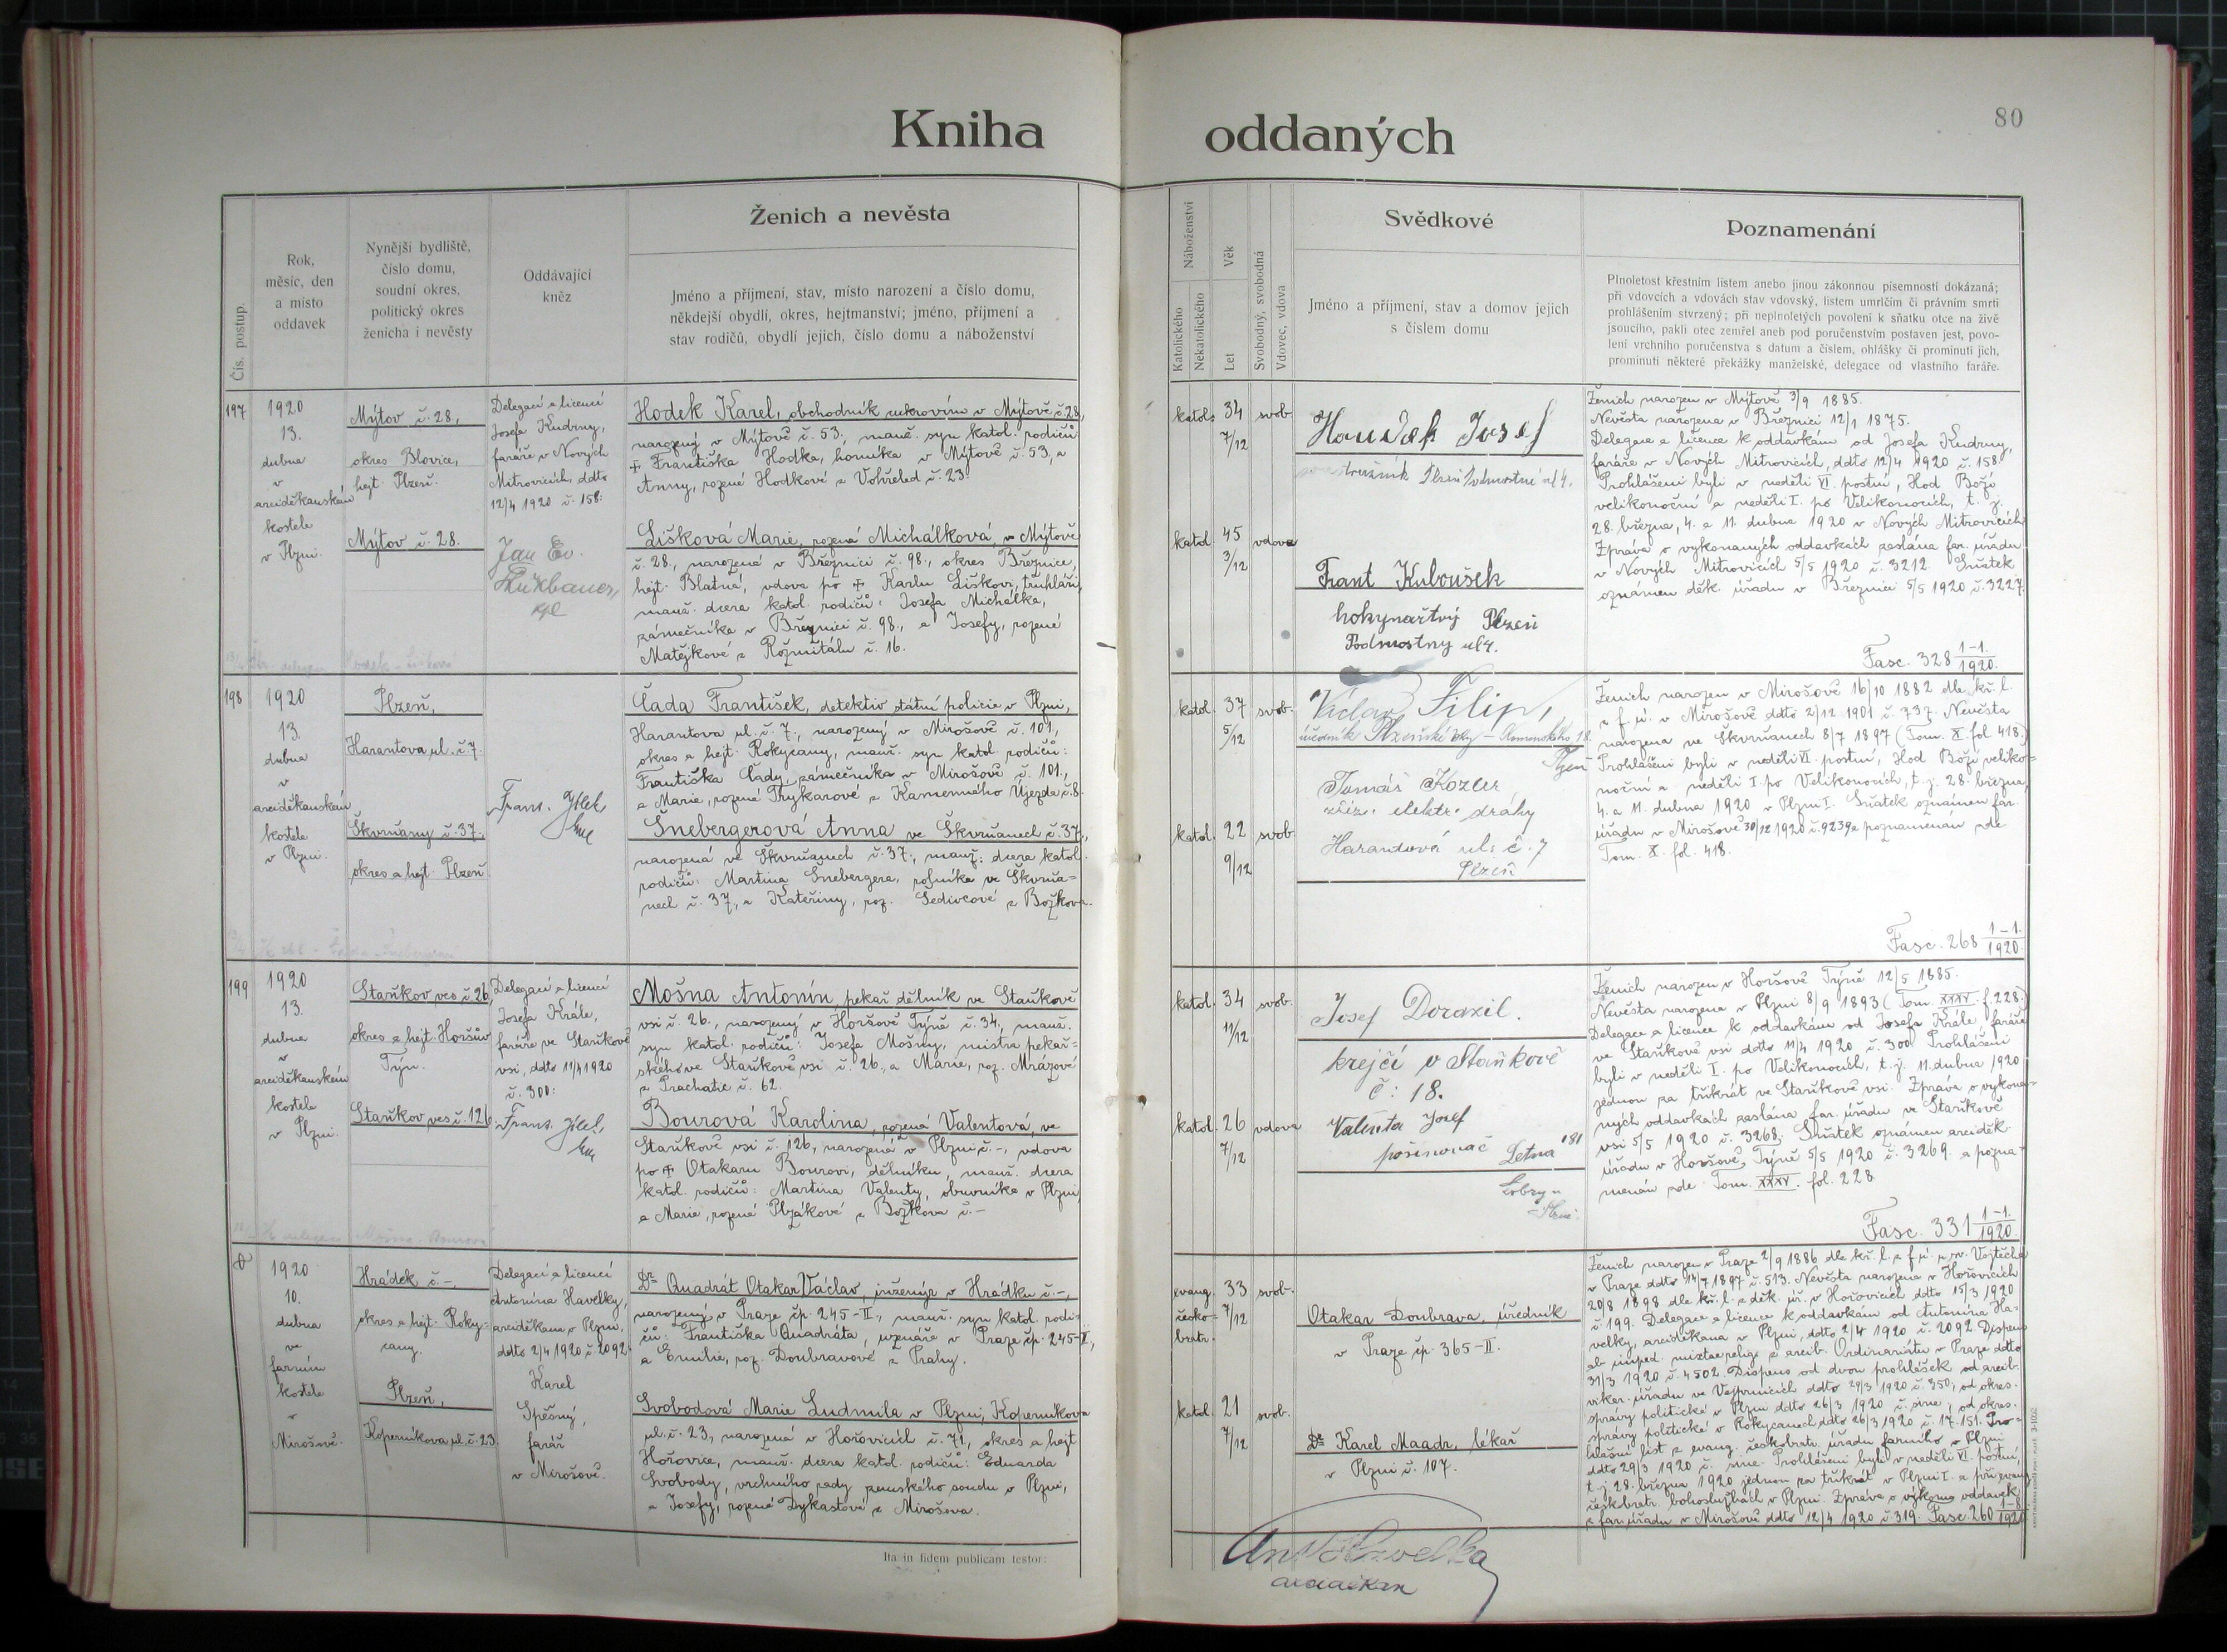 Kniha
oddaných
80
Čís. postup.
Rok,
měsíc, den
a místo
oddavek
Nynější bydliště,
číslo domu,
soudní okres,
politický okres
ženicha i nevěsty
Oddávající
kněz
Ženich a nevěsta
Jméno a příjmení, stav, místo narození a číslo domu,
někdejší obydlí, okres, hejtmanství; jméno, příjmení a
stav rodičů, obydlí jejich, číslo domu a náboženství
Náboženství
Katolického
Nekatolického
Věk
Let
Svobodný, svobodná
Vdovec, vdova
Svědkové
Jméno a příjmení, stav a domov jejich
s číslem domu
Poznamenání
Plnoletost křestním listem anebo jinou zákonnou písemností dokázaná;
při vdovcích a vdovách stav vdovský, listem umrlčím či právním smrti
prohlášením stvrzený; při neplnoletých povolení k sňatku otce na živě
jsoucího, pakli otec zemřel aneb pod poručenstvím postaven jest, povo-
lení vrchního poručenstva s datum a číslem, ohlášky či prominutí jich,
prominutí některé překážky manželské, delegace od vlastního faráře.
197
1920
13.
dubna
v
arciděkanském
kostele
v Plzni.
Mýtov č. 28,
okres Blovice,
hejt. Plzeň.
Mýtov č. 28.
Delegací a licencí
Josefa Kudrny,
faráře v Nových
Mitrovicích, ddto
12/4 1920 č. 158:
Jan Ev.
kpl
Hodek Karel, obchodník cukrovím v Mýtově č. 28,
narozený v Mýtově č. 53., manž. syn katol. rodičů
✠ Františka Hodka, horníka v Mýtově č. 53, a
Anny, rozené Hodkové z Vohřeled č. 23.
Lišková Marie, rozená Michálková, v Mýtově
č. 28., narozená v Březnici č. 98., okres Březnice,
hejt. Blatná, vdova po ✠ Karlu Liškovi, truhláři,
manž. dcera katol. rodičů: Josefa Michálka,
zámečníka v Březnici č. 98., a Josefy, rozené
Matějkové z Rožmitálu č. 16.
katol. 34 svob.
7/12
katol. 45 vdova
3/12
Houdek Josef
Frant Kuboušek
hokynařtvý Plzeň
Podmostny ul 4.
Ženich narozen v Mýtově 3/9 1885.
Nevěsta narozena v Březnici 12/1 1875.
Delegace a licence k oddavkám od Josefa Kudrny,
faráře v Nových Mitrovicích, ddto 12/4 1920 č. 158.
Prohlášeni byli v neděli VI. postní, Hod Boží
velikonoční a neděli I. po Velikonocích, t. j.
28. března, 4. a 11. dubna 1920 v Nových Mitrovicích
Zpráva o vykonaných oddavkách zaslána far. úřadu
v Nových Mitrovicích 5/5 1920 č. 3212. Sňatek
oznámen děk. úřadu v Březnici 5/5 1920 č. 3227.
Fasc. 328 1-1./1920.
198
1920
13.
dubna
v
arciděkanském
kostele
v Plzni.
Plzeň,
Harantova ul. č. 7.
Škvrňany č. 37.,
okres a hejt. Plzeň.
Frant. Jílek
Čada František, detektiv státní policie v Plzni,
Harantova ul. č. 7., narozený v Mirošově č. 101,
okres a hejt. Rokycany, manž. syn katol. rodičů:
Františka Čady, zámečníka v Mirošově č. 101.,
a Marie, rozené Trykarové z Kamenného Újezda č. 8.
Šnebergerová Anna ve Škvrňanech č. 37.,
narozená ve Škvrňanech č. 37., manž. dcera katol.
rodičů: Martina Šnebergera, rolníka ve Škvrňa-
nech č. 37., a Kateřiny, roz. Šedivcové z Božkova.
katol. 37 svob.
5/12
katol. 22 svob.
9/12
Václav Filip,
úředník Plzeňské Komenského 18.
Plzeň
Tomáš Kozler
zříz. elektr. dráhy
Harandová ul. č. 7
Plzeň
Ženich narozen v Mirošově 16/10 1882 dle kř. l.
z f. ú. v Mirošově ddto 2/12 1901 č. 737. Nevěsta
narozena ve Škvrňanech 8/7 1897 (Tom. X. fol 418.)
Prohlášeni byli v neděli VI. postní, Hod Boží veliko-
noční a neděli I. po Velikonocích, t. j. 28. března,
4. a 11. dubna 1920 v Plzni I. Sňatek oznámen far.
úřadu v Mirošově 30/12 1920 č. 9239 a poznamenán zde
Tom. X. fol. 418.
Fasc. 268 1-1./1920.
199
1920
13.
dubna
v
arciděkanském
kostele
v Plzni.
Staňkov ves č. 26,
okres a hejt. Horšův
Týn.
Staňkov ves č. 126
Delegací a licencí
Josefa Krále,
faráře ve Staňkově
vsi, ddto 11/4 1920
č. 300:
Frant. Jílek,
Mošna Antonín, pekař. dělník ve Staňkově
vsi č. 26., narozený v Horšově Týně č. 34, manž.
syn katol. rodičů: Josefa Mošny, mistra pekař-
ského ve Staňkově vsi č. 26., a Marie, roz. Mrázové
z Prachatic č. 62.
Bourová Karolina, rozená Valentová, ve
Staňkově vsi č. 126, narozená v Plzni č. -, vdova
po ✠ Otakaru Bourovi, dělníku, manž. dcera
katol. rodičů: Martina Valenty, obuvníka v Plzni,
a Marie, rozené Plzákové z Božkova č. -
katol. 34 svob.
11/12
katol. 26 vdova
7/12
Josef Dorazil.
krejčí v Staňkově
č: 18.
Valenta Josef
pošinovač Letna 181
Lobzy u
Plzně
Ženich narozen v Horšově Týně 12/5 1885.
Nevěsta narozena v Plzni 8/9 1893 (Tom. XXXV. f. 228.)
Delegace a licence k oddavkám od Josefa Krále, faráře
ve Staňkově vsi ddto 11/4 1920 č. 300. Prohlášeni
byli v neděli I. po Velikonocích, t. j. 11. dubna 1920
jednou za třikrát ve Staňkově vsi. Zpráva o vykona-
ných oddavkách zaslána far. úřadu ve Staňkově
vsi 5/5 1920 č. 3268. Sňatek oznámen arciděk.
úřadu v Horšově Týně 5/5 1920 č. 3269. a pozna-
menán zde Tom. XXXV. fol. 228.
Fasc. 331 1-1./1920.
1920
10.
dubna
ve
farním
kostele
v
Mirošově.
Hrádek č. -,
okres a hejt. Roky-
cany.
Plzeň,
Koperníkova ul. č. 23.
Delegací a licencí
Antonína Havelky,
arciděkana v Plzni,
ddto 2/4 1920 č. 2092.
Karel
Spěšný,
farář
v Mirošově.
Dr. Quadrát Otakar Václav, inženýr v Hrádku č. -,
narozený v Praze čp. 245-II., manž. syn katol. rodi-
čů: Františka Quadráta, uzenáře v Praze čp. 245-II.,
a Emilie, roz. Doubravové z Prahy.
Svobodová Marie Ludmila v Plzni, Koperníkova
ul. č. 23, narozená v Hořovicích č. 71, okres a hejt
Hořovice, manž. dcera katol. rodičů: Eduarda
Svobody, vrchního rady zemského soudu v Plzni,
a Josefy, rozené Dykastové z Mirošova.
evang. 33 svob.
česko- 7/12
bratr.
katol. 21 svob.
7/12
Otakar Doubrava, úředník
v Praze čp. 365-II.
Dr. Karel Maadr, lékař
v Plzni č. 107.
Ženich narozen v Praze 2/9 1886 dle kř. l. z f. ú. u sv. Vojtěcha
v Praze ddto 14/7 1897 č. 513. Nevěsta narozena v Hořovicích
20/8 1898 dle kř. l. z děk. úř. v Hořovicích ddto 15/3 1920
č. 199. Delegace a licence k oddavkám od Antonína Ha-
velky, arciděkana v Plzni, ddto 2/4 1920 č. 2092. Dispens
ab imped. mixtae relig. z arcib. Ordinariátu v Praze ddto
31/3 1920 č. 4502. Dispens od dvou prohlášek od arcib.
vikar. úřadu ve Vejprnicích ddto 29/3 1920 č. 350, od okres.
správy politické v Plzni ddto 26/3 1920 č. sine, od okres.
správy politické v Rokycanech ddto 26/3 1920 č. 17.151. Pro-
hlašní list z evang. českobratr. úřadu farního v Plzni
ddto 29/3 1920 č. sine. Prohlášeni byli v neděli VI. postní,
t. j. 28. března 1920 jednou za třikrát v Plzni I. a při evang.
českobratr. bohoslužbách v Plzni. Zpráva o výkonu oddavek
z far. úřadu v Mirošově ddto 12/4 1920 č. 319. Fasc. 260 1-8/1920
Ita in fidem publicam testor:
Ant Havelka
arciděkan